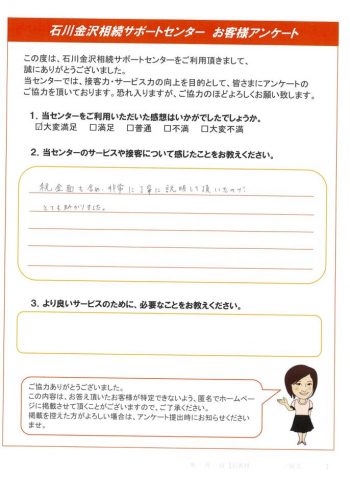 石川金沢相続サポートセンター　お客様アンケート
この度は、石川金沢相続サポートセンターをご利用頂きまして、
誠にありがとうございました。
当センターでは、接客力・サービス力の向上を目的として、皆さまにアンケートの
ご協力を頂いております。恐れ入りますが、ご協力のほどよろしくお願い致します。
1．当センターをご利用いただいた感想はいかがでしたでしょうか。
☑大変満足　□満足　□普通　□不満　□大変不満
2．当センターのサービスや接客について感じたことをお教えください。
税金面も含め、非常に丁寧に説明して頂いたので
とても助かりました。
3．より良いサービスのために、必要なことをお教えください。
ご協力ありがとうございました。
この内容は、お答え頂いたお客様が特定できないよう、匿名でホームペー
ジに掲載させて頂くことがございますので、ご了承ください。
掲載を控えた方がよろしい場合は、アンケート提出時にお知らせください
ませ。